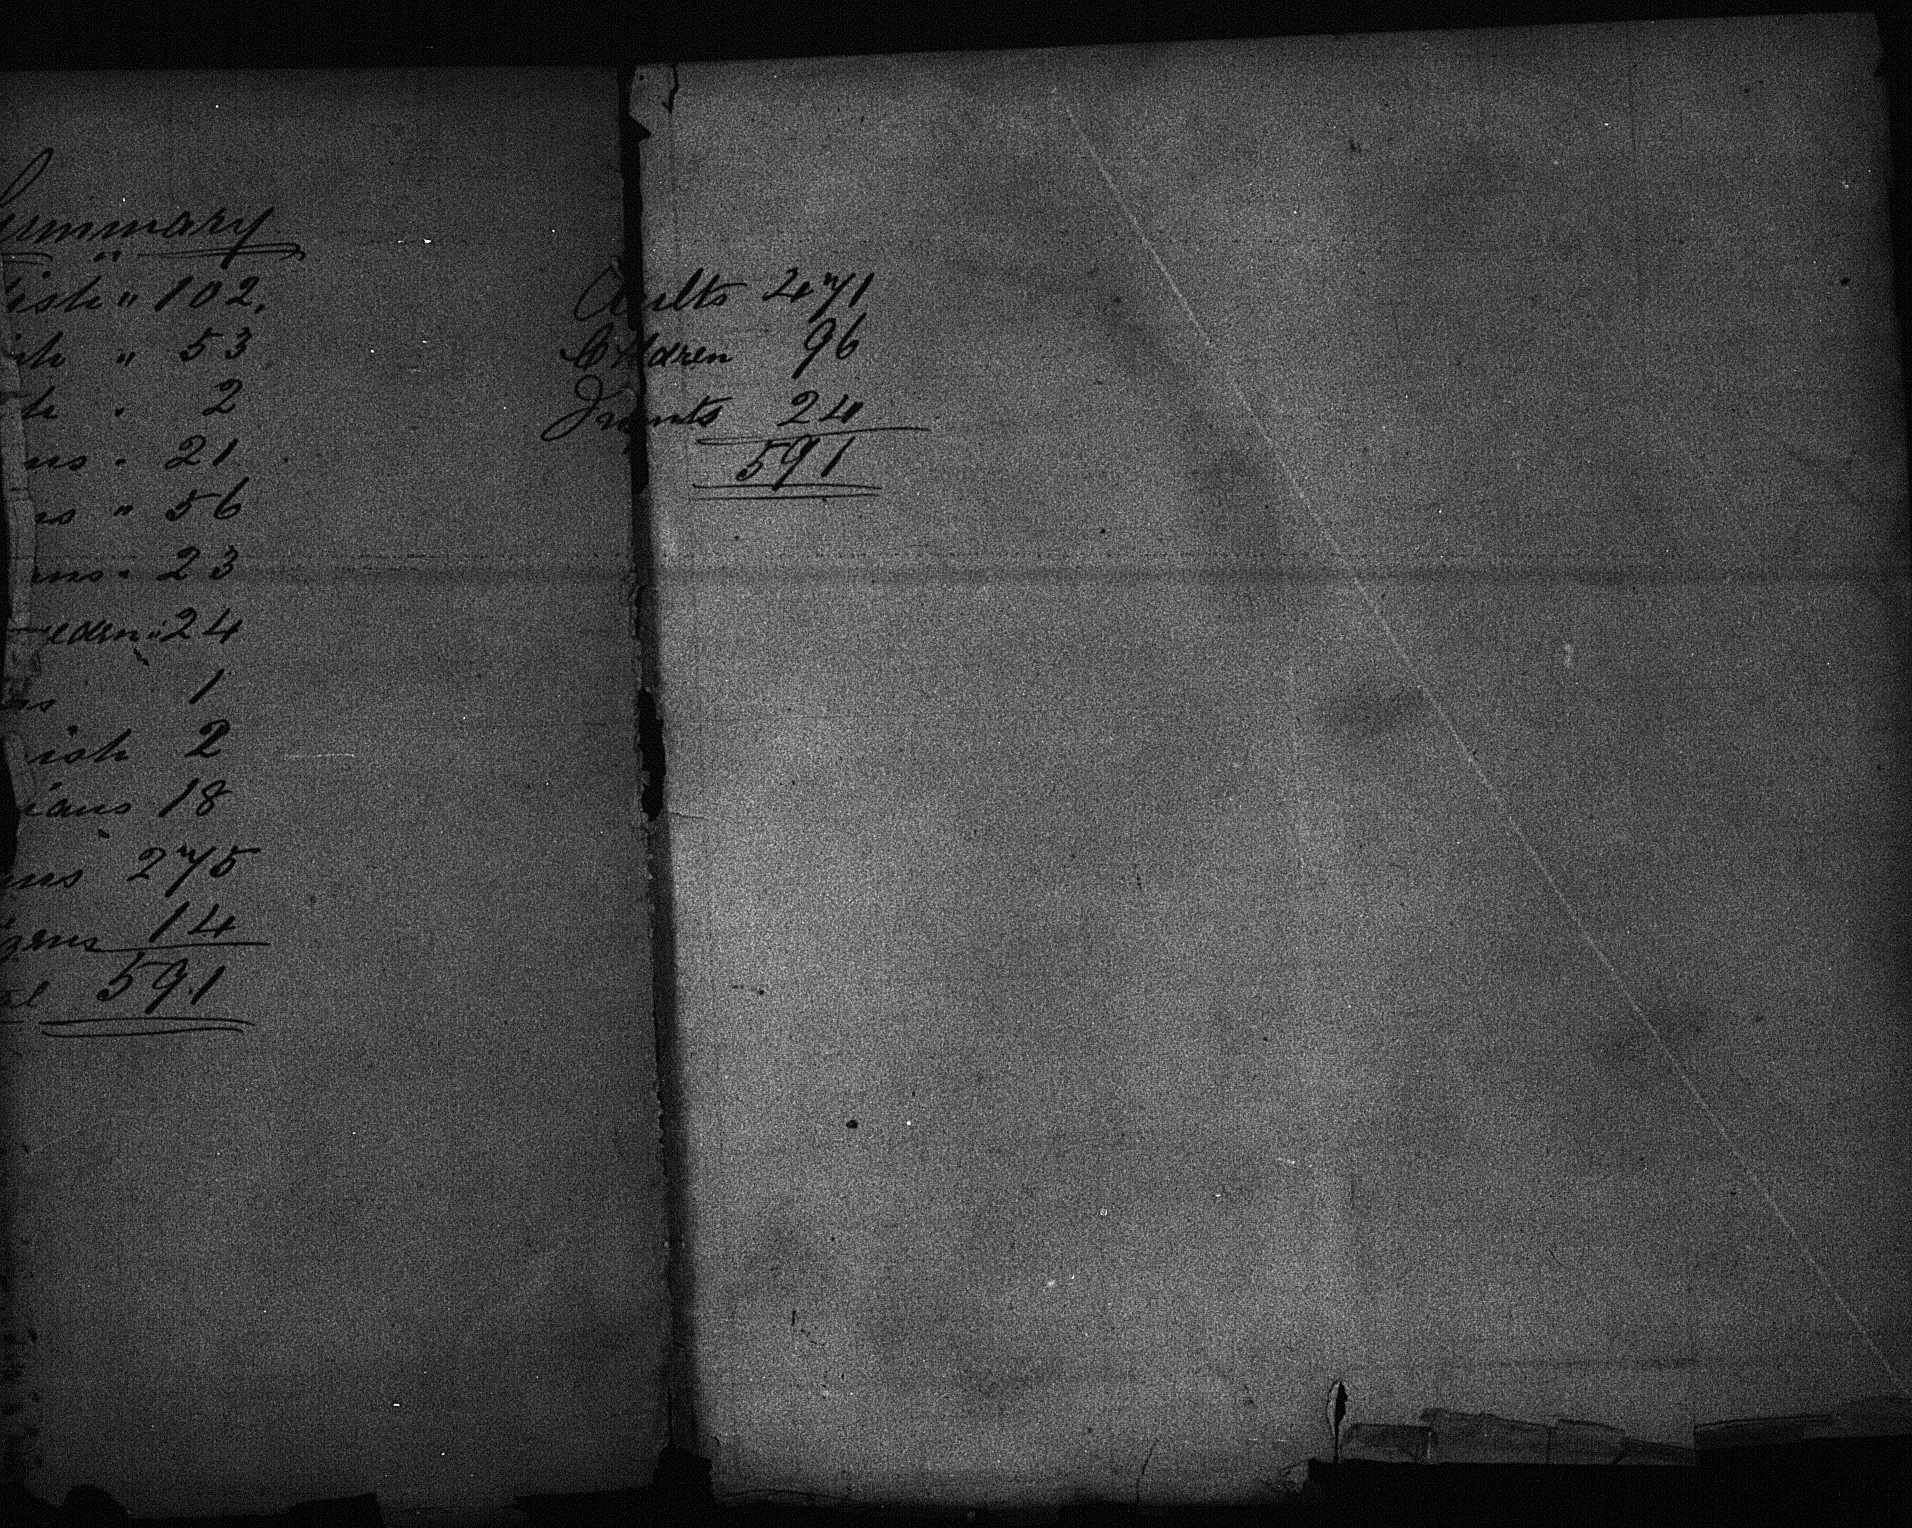 Summary
ish " 102.
ish " 53
h . 2
ns . 21
ns " 56
ans . 23
eden " 24
ns 1
ish 2
ians 18
ans 275
izens 14
al 591
Adults 471
Children 96
Infants 24
591